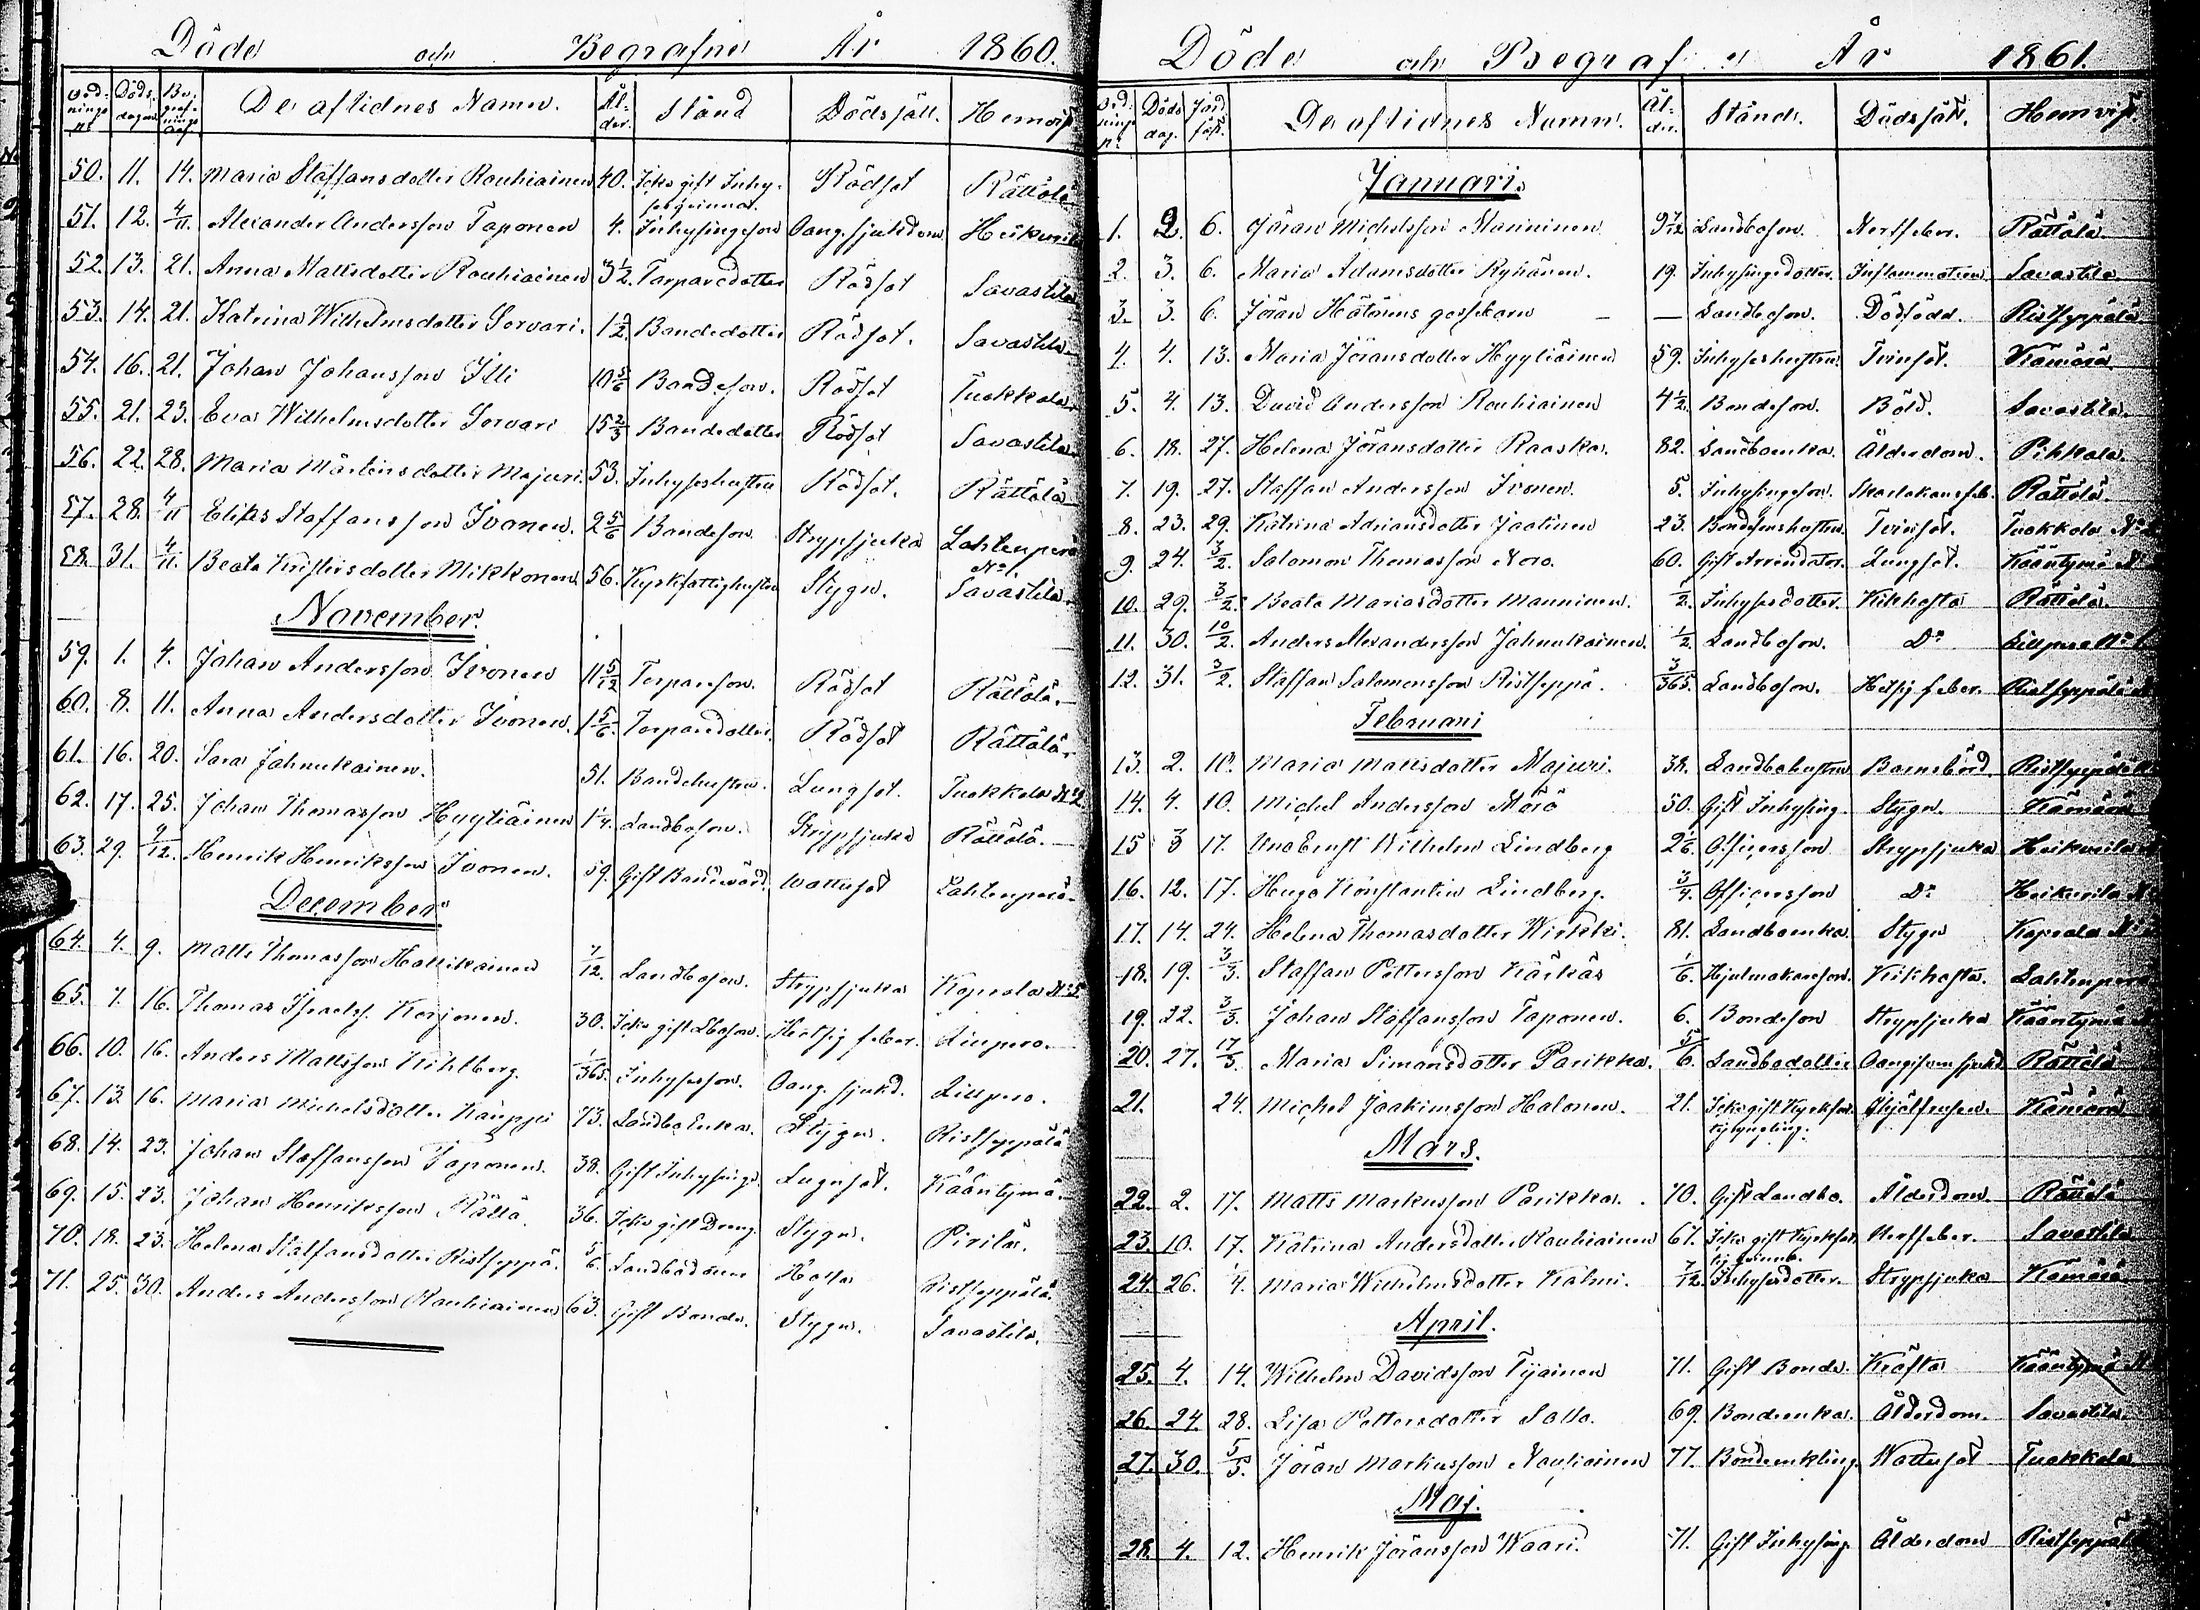 Döde och Begrafne År 1860.
Ordnings n:o Döds dagen Begrafnings dag De aflidnes Namn. Ålder. Stånd Dödssätt. Hemvist
50. 11. 14. Maria Staffansdotter Rouhiainen 40. Icke gift Inhy- Rödsot Rättölä
sesqvinna.
51. 12. 4/11. Alexander Andersson Taponen 4. Inhysingeson Oang. sjukdom Heikurila
52. 13. 21. Anna Mattsdotter Rouhiainen 3 1/2. Torparedotter Rödsot Savastila
53. 14. 21. Katrina Wilhelmsdotter Sorvari. 1 1/2. Bondedotter Rödsot. Savastila
54. 16. 21. Johan Johansson Illi 10 5/6 Bondeson. Rödsot Tuokkola
55. 21. 23. Eva Wilhelmsdotter Sorvari 15 2/3 Bondedotter Rödsot Savastila
56. 22. 28. Maria Mårtensdotter Majuri. 53. Inhyseshustru Rödsot. Rättölä
57. 28. 4/11 Elias Staffansson Ivonen. 2 5/6 Bondeson Strypsjuka Lahtenperä
N:o 1.
58. 31. 4/11. Beata Kristersdotter Mikkonen 56. Kyrkfattighustru Stygn. Savastila.
November.
59. 1. 4. Johan Andersson Ivonen 11 5/12 Torpareson. Rödsot Rättölä.
60. 8. 11. Anna Andersdotter Ivonen. 1 5/6. Torparedotter. Rödsot Rättölä.
61. 16. 20. Sara Jahnukainen. 51. Bondehustru. Lungsot. Tuokkola N:o 2
62. 17. 25. Johan Thomasson Hyytiäinen 1 1/4. Landboson. Strypsjuka Rättölä.
63. 29. 9/12. Henrik Henriksson Ivonen. 59. Gift Bondevärd. Wattusot Lahtenperä.
December.
64. 4. 9. Matts Thomasson Hallikainen 7/12. Landboson. Strypsjuka Koprala N:o 5
65. 7. 16. Thomas Israelss. Korjonen. 30. Icke gift Lboson. Hetsig feber. Liupero.
66. 10. 16. Anders Mattsson Kihlberg. 1/365. Inhysesson. Oang. sjukd. Liupero.
67. 13. 16. Maria Michelsdotter Kauppi 73. Landbo Enka. Stygn. Ristseppälä
68. 14. 23. Johan Staffansson Taponen. 38. Gift Inhysinge. Lugnsot. Kääntymä.
69. 15. 23. Johan Henriksson Mällä. 36. Icke gift Dreng. Stygn. Pirilä.
70. 18. 23. Helena Staffansdotter Ristseppä. 5/6. Landbodotter Hosta Ristseppälä.
71. 25. 30. Anders Andersson Rauhiainen 63. Gift Bonde. Stygn. Savastila.
Döde och Begrafne År 1861.
Ordnings n:o Döds dag. Jordfäst. De aflidnes Namn. Ålder. Stånd. Dödssätt. Hemvist.
Januari.
1. 2. 6. Jöran Michelsson Manninen. 9 7/12 Landboson. Nervfeber. Rättölä.
2. 3. 6. Maria Adamsdotter Ryhänen. 19. Inhysingedotter. Inflammation Savastila
3. 3. 6. Jöran Hätönens gossebarn — — Landboson. Dödfödd. Ristseppälä
4. 4. 13. Maria Jöransdotter Hyytiäinen 59. Inhyseshustru. Tvinsot. Kämärä
5. 4. 13. David Andersson Rouhiainen 4 1/2. Bondeson. Böld. Savastila.
6. 18. 27. Helena Jöransdotter Raaska. 82. Landboenka. Ålderdom. Pihkala.
7. 19. 27. Staffan Andersson Ivonen. 5. Inhysingeson. Skarlakansfeb. Rättölä
8. 23. 29. Katrina Adriansdotter Jaatinen 23. Bondesonshustru. Tvinsot. Tuokkola N:o
9. 24. 3/2. Salomon Thomasson Noro. 60. Gift Arrendator. Lungsot. Kääntymä N:o
10. 29. 3/2. Beata Mariasdotter Manninen. 1/2. Inhysesdotter. Kikhosta Rättölä.
11. 30. 10/2. Anders Alexandersson Jahnukainen. 1/2. Landboson. D:o Liupero N:o 1
12. 31. 3/2. Staffan Salomonsson Ristseppä. 3/365. Landboson. Hetsig feber. Ristseppälä
Februari
13. 2. 10. Maria Mattsdotter Majuri. 38. Landbohustru Barnsbörd. Ristseppälä
14. 4. 10. Michel Andersson Mörö 50. Gift Inhysing. Stygn. Kämärä
15 3 17. Uno Ernst Wilhelm Lindberg 2 1/6. Officersson Strypsjuka Heikurila
16. 12. 17. Hugo Konstantin Lindberg. 3/4. Officersson D:o Heikurila N:o
17. 14. 24. Helena Thomasdotter Wirkki. 81. Landboenka Stygn Koprala N:o
18. 19. 3/3. Staffan Pettersson Kärkäs 1/6. Hjulmakareson. Kikhosta. Lahtenperä
19. 22. 3/3. Johan Staffansson Taponen. 6. Bondeson Strypsjuka Kääntymä
20. 27. 17/3. Maria Simonsdotter Parikka. 5/6. Landbodotter Oangifven sjukd. Rättölä
21. 24. Michel Joakimsson Halonen. 21. Icke gift Kyrkfat- Ihjälfrusen. Kämärä
tigyngling.
Mars.
22. 2. 17. Matts Markusson Parikka. 70. Gift Landbo. Ålderdom. Rättölä
23. 10. 17. Katrina Andersdotter Rouhiainen 67. Icke gift Kyrkfat- Nervfeber. Savastila
tigqvinna.
24. 26. 1/4. Maria Wilhelmsdotter Kälmi. 7/12. Inhysesdotter. Strypsjuka Kämärä
April.
25. 4. 14. Wilhelm Davidsson Tyäinen 71. Gift Bonde. Kräfta Kääntymä N:o
26. 24. 28. Lisa Pettersdotter Salla. 69. Bondeenka. Ålderdom. Savastila.
27. 30. 5/5. Jöran Markusson Nauhiainen 77. Bondeenkling. Wattusot Tuokkola
Maj.
28. 4. 12. Henrik Jöransson Waari. 71. Gift Inhysing. Ålderdom Ristseppälä